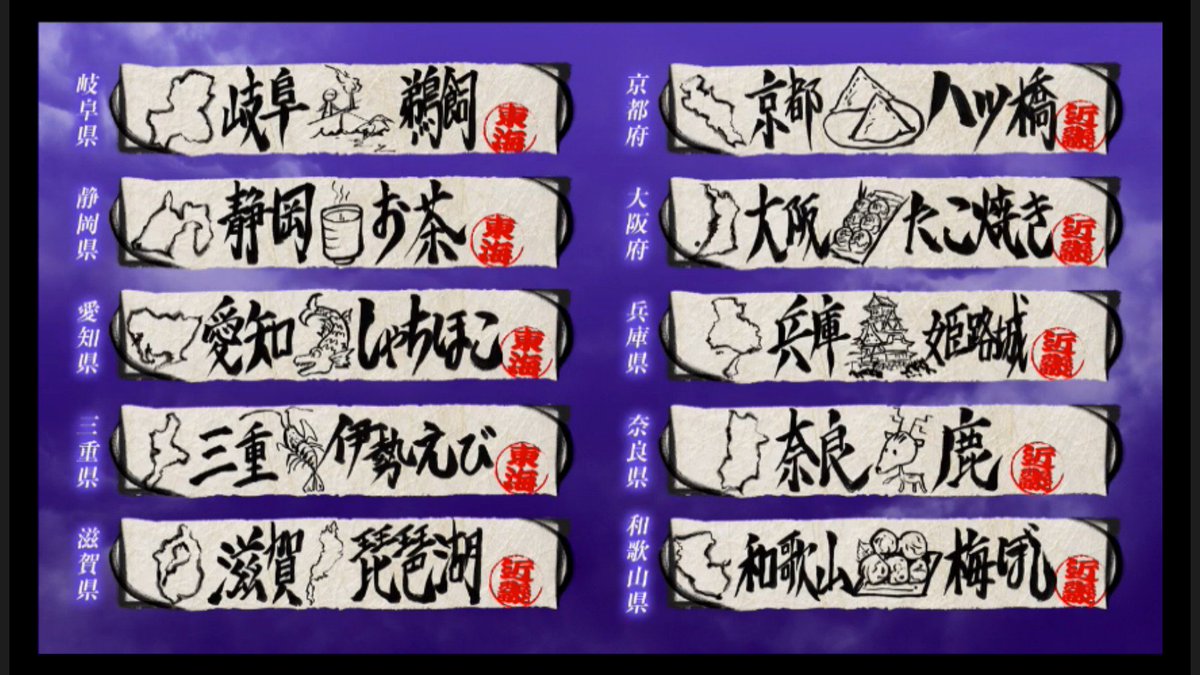 岐阜県
岐阜 鵜飼 東海
静岡県
静岡 お茶 東海
愛知県
愛知 しゃちほこ 東海
三重県
三重 伊勢えび 東海
滋賀県
滋賀 琵琶湖 近畿
京都府
京都 八ツ橋 近畿
大阪府
大阪 たこ焼き 近畿
兵庫県
兵庫 姫路城 近畿
奈良県
奈良 鹿 近畿
和歌山県
和歌山 梅ぼし 近畿